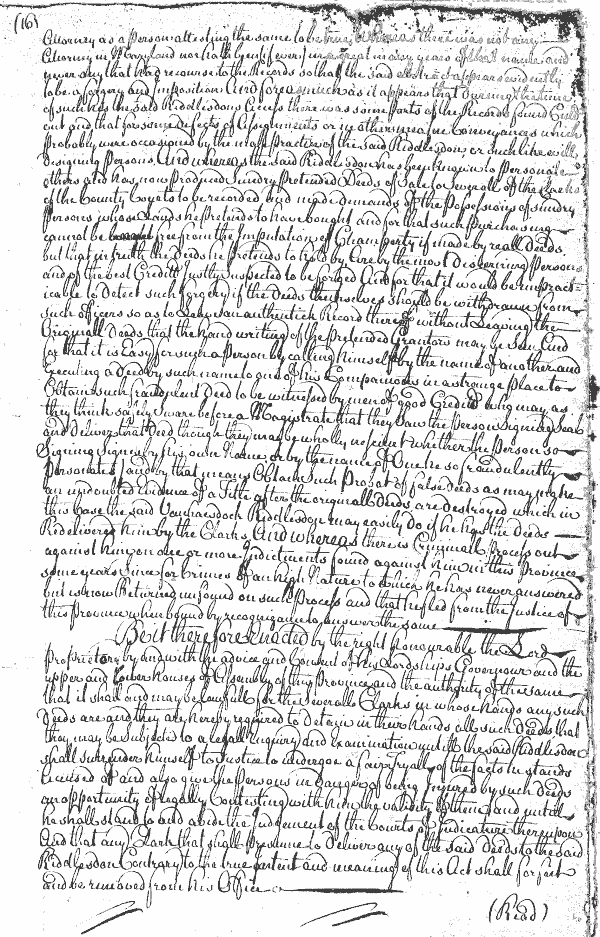 (16)
Attorney as a person attesting the same to be true whereas there was not any
Attorney in Maryland nor hath been (if ever) in a great many years of that name and
never any that had recourse to the Records so that the said abstract appears evidently
to be a forgery and imposition And forasmuch as it appears that during the time
of such his the said Riddlesdons access there was some parts of the Records found Cutt
out and that for some defects of Assignments or in other mesne Conveyances which
probably were occasioned by the mall practice of the said Riddlesdon or such like
designing persons And whereas the said Riddlesdon has been known to personate
others and has now produced sundry pretended Deeds of Sale to severall of the Clarks
of the County Courts to be recorded and made demands of the Possessions of sundry
persons whose Lands he pretends to have bought and for that such purchasing
cannot be free from the Imputation of Champerty if made by reall Deeds
but that in truth the Deeds he pretends to hold by are by the most Discerning Persons
and of the best Creditt justly suspected to be forged And for that it would be impract-
icable to Detect such forgery if the Deeds themselves should be withdrawn from
such officers so as to be an authentick Record thereof without Leaving the
Originall Deeds that the hand writing of the pretended Grantors may be seen And
for that it is Easy for such a person by calling himself by the name of another and
executing a Deed by such name to one of his Companions in a strange place to
Obtain such fraudulent Deed to be witnessed by men of good Creditt who may as
they think safely sware before a Magistrate that they saw the Person signing seal
and deliver that Deed though they may be wholly ignorant whether the Person so
Signing Signes by his own Name or by the name of One he so fraudulently
personates and by that means Obtain such Proof of false Deeds as may make
an undoubted Evidence of a Title after the originall Deeds are destroyed which in
this Case the said Riddlesdon may easily do if he has the Deeds
Redelivered him by the Clarks And whereas there is Criminall Process out
against him on one or more Indictments found against him in this Province
some years since for crimes of an high Nature to which he has never answered
but is now Returned on such Process and that he fled from the Justice of
this province when bound by recognizance to answer the same
Be it therefore Enacted by the right honourable the Lord
proprietary by and with the advice and consent of his Lordships Governour and the
upper and Lower houses of Assembly of this province and the authority of the same
that it shall and may be lawfull for the severalle Clarks in whose hands any such
Deeds are and they are hereby required to Detain in their hands all such Deeds that
they may be subjected to a legall Inquiry and Examination untill the said Riddlesdon
shall surrender himself to Justice to undergoe a fair tryall of the facts he stands
accused of and also give the persons in danger of being Injured by such Deeds
an opportunity of legally Contesting with him the validity of them and untill
he shall stand to and abide the Judgement of the Courts of Judicature thereupon
And that any Clark that shall presume to deliver any of the said Deeds to the said
Riddlesdon Contrary to the true intent and meaning of this Act shall forfeit
and be removed from his Office
(Read)